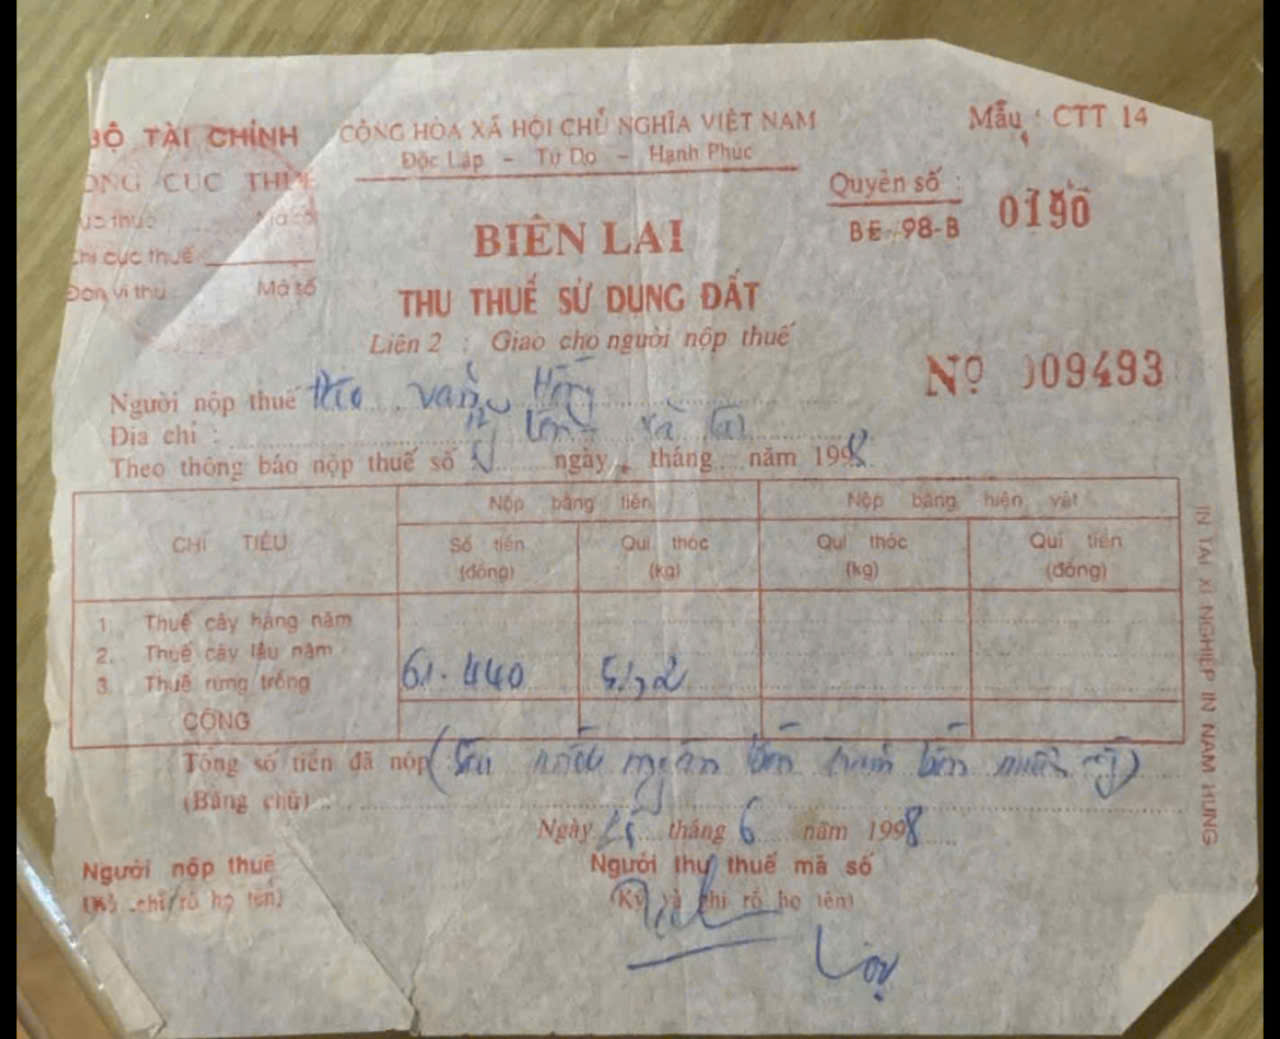 BỘ TÀI CHÍNH
CỘNG HÒA XÃ HỘI CHỦ NGHĨA VIỆT NAM
Độc Lập - Tự Do - Hạnh Phúc
Mẫu : CTT 14
CỤC THUẾ
Mã số
Chi cục thuế
Đơn vị thu Mã số
Quyển số :
BE-98-B
0190
BIÊN LAI
THU THUẾ SỬ DỤNG ĐẤT
Liên 2 : Giao cho người nộp thuế
Nº 009493
Người nộp thuế
Địa chỉ :
Theo thông báo nộp thuế số ngày tháng năm 1998
CHỈ TIÊU
Nộp bằng tiền
Nộp bằng hiện vật
Số tiền (đồng)
Qui thóc (kg)
Qui thóc (kg)
Qui tiền (đồng)
1. Thuế cây hàng năm
2. Thuế cây lâu năm
3. Thuế rừng trồng
61.440 51,2
CỘNG
Tổng số tiền đã nộp
(Bằng chữ)
Ngày 25 tháng 6 năm 1998
Người nộp thuế
(Ký, ghi rõ họ tên)
Người thu thuế mã số
(Ký và ghi rõ họ tên)
IN TẠI XÍ NGHIỆP IN NAM HƯNG